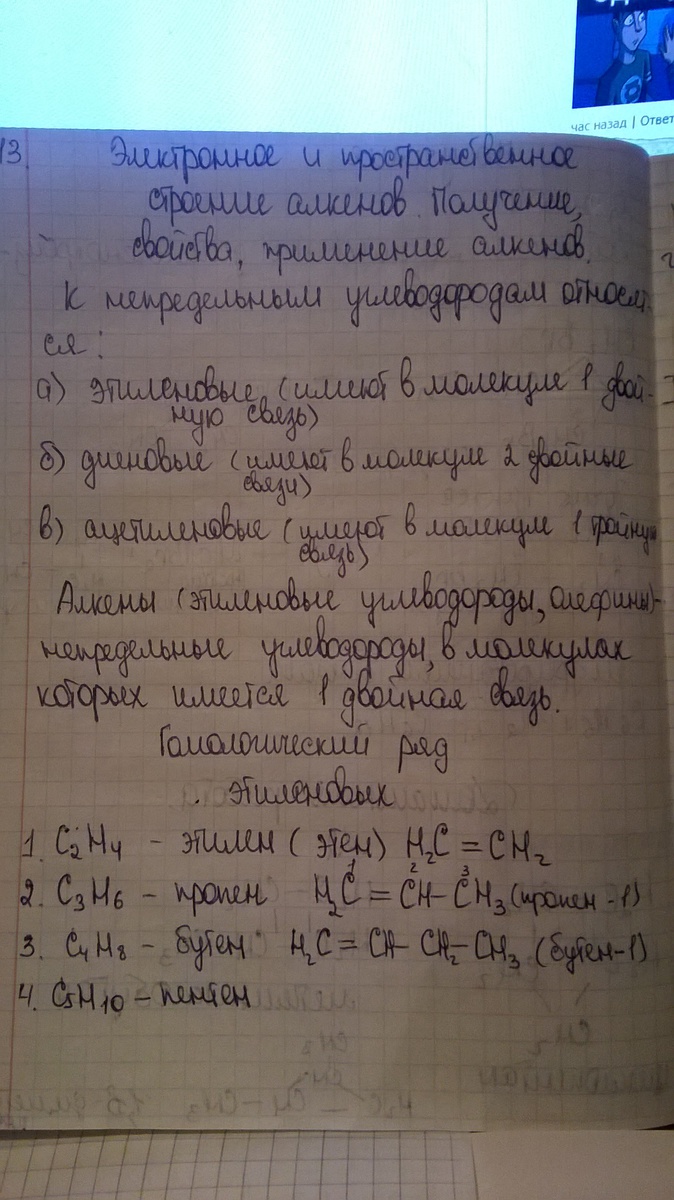 час назад | Ответ
13. Электронное и пространственное
строение алкенов. Получение,
свойства, применение алкенов.
К непредельным углеводородам относят-
ся:
а) этиленовые (имеют в молекуле 1 двой-
ную связь)
б) диеновые (имеют в молекуле 2 двойные
связи)
в) ацетиленовые (имеют в молекуле 1 тройную
связь)
Алкены (этиленовые углеводороды, олефины)-
непредельные углеводороды, в молекулах
которых имеется 1 двойная связь.
Гомологический ряд
этиленовых
1. C₂H₄ - этилен (этен) H₂C = CH₂
1 2 3
2. C₃H₆ - пропен H₂C = CH - CH₃ (пропен-1)
3. C₄H₈ - бутен H₂C = CH - CH₂ - CH₃ (бутен-1)
4. C₅H₁₀ - пентен